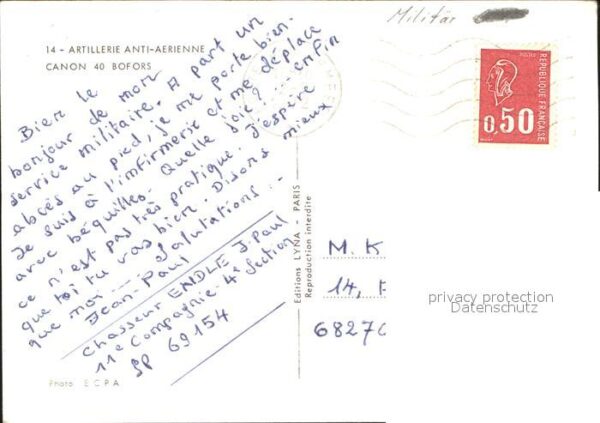 Militär
14 - ARTILLERIE ANTI-AERIENNE
CANON 40 BOFORS
Bien le
bonjour de mon
service militaire. A part un
abcès au pied, je me porte bien.
Je suis à l'infirmerie et me déplace
avec béquilles. Quelle joie?... enfin
ce n'est pas très pratique. J'espère
que toi tu vas bien. Disons mieux
que moi... Salutations...
Jean-Paul
Chasseur ENDLE J. Paul
11e Compagnie - 4e Section
SP 69154
Photo ECPA
Editions LYNA - PARIS
Reproduction interdite
POSTES
REPUBLIQUE FRANÇAISE
0,50
M. K
14,
6827
privacy protection
Datenschutz